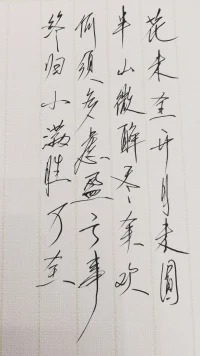 花未全开月未圆
半山微醉尽余欢
何须多虑盈亏事
终归小满胜万全